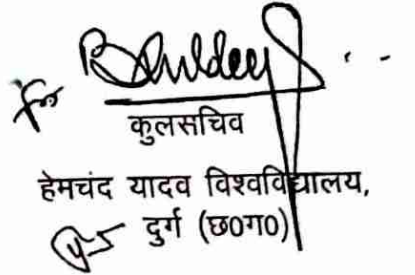 For
कुलसचिव
हेमचंद यादव विश्वविद्यालय,
दुर्ग (छ0ग0)